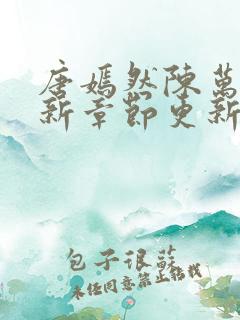 唐嫣然陳萬
新章節更新
包子很蘇
未經同意禁止轉載